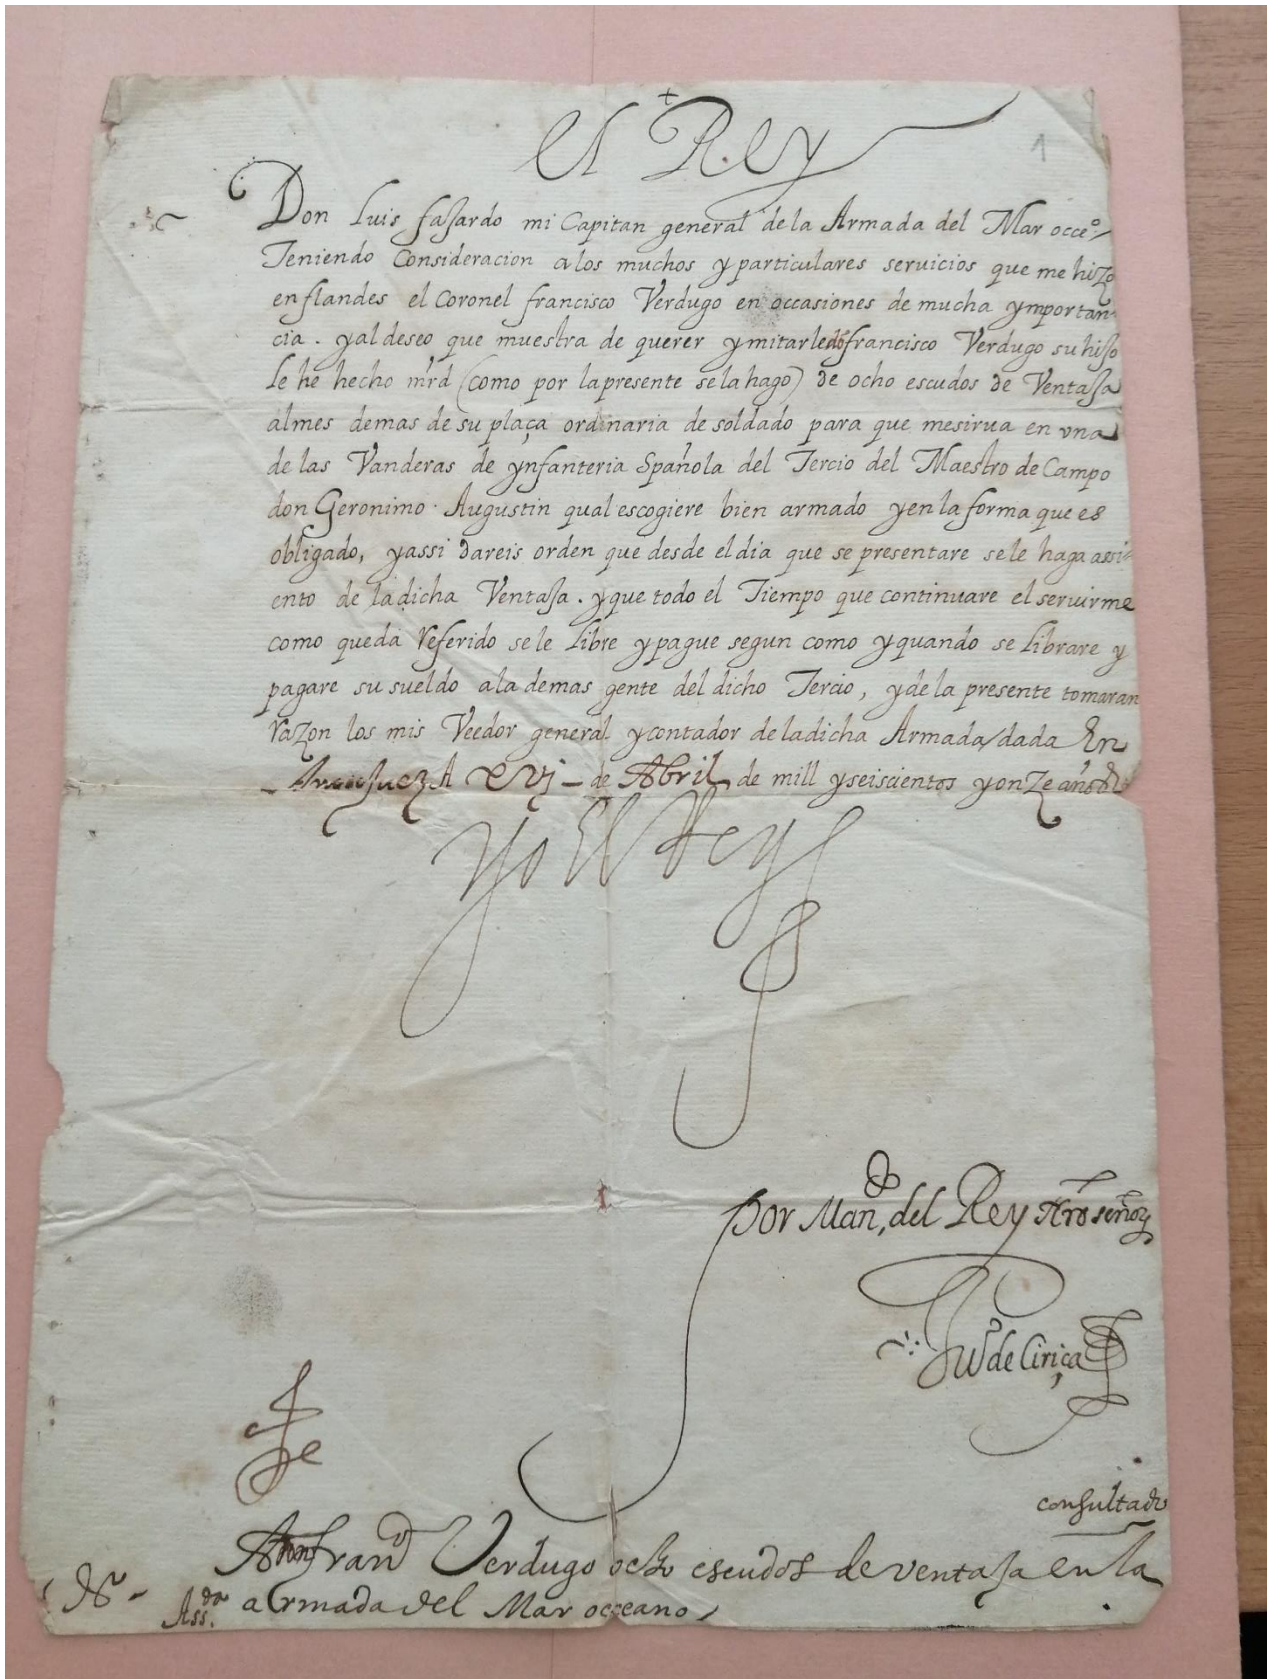 +
el Rey
1
Don Luis fajardo mi Capitan general de la Armada del Mar occeº,
Teniendo Consideracion a los muchos y particulares servicios que me hizo
en flandes el Coronel francisco Verdugo en occasiones de mucha ymportan
cia. y al deseo que muestra de querer ymitarle don francisco Verdugo su hijo
le he hecho mrd (como por la presente se la hago) de ocho escudos de Ventaja
al mes demas de su plaça ordinaria de soldado para que me sirua en vna
de las Vanderas de ynfanteria Española del Tercio del Maestro de Campo
don Geronimo Augustin qual escogiere bien armado y en la forma que es
obligado, y assi dareis orden que desde el dia que se presentare se le haga assi-
ento de la dicha Ventaja. y que todo el Tiempo que continuare el seruirme
como queda Referido se le Libre y pague segun como y quando se Librare y
pagare su sueldo a la demas gente del dicho Tercio, y de la presente tomaran
Razon los mis Veedor general y contador de la dicha Armada/dada En
Aranjuez A xvj de Abril de mill y seiscientos y onze años
Yo El Rey
Por Man.do del Rey nro señor
Juº de Ciriça
consultado
A don franco Verdugo ocho escudos de ventaja en la
Ass.da armada del Mar occeano,